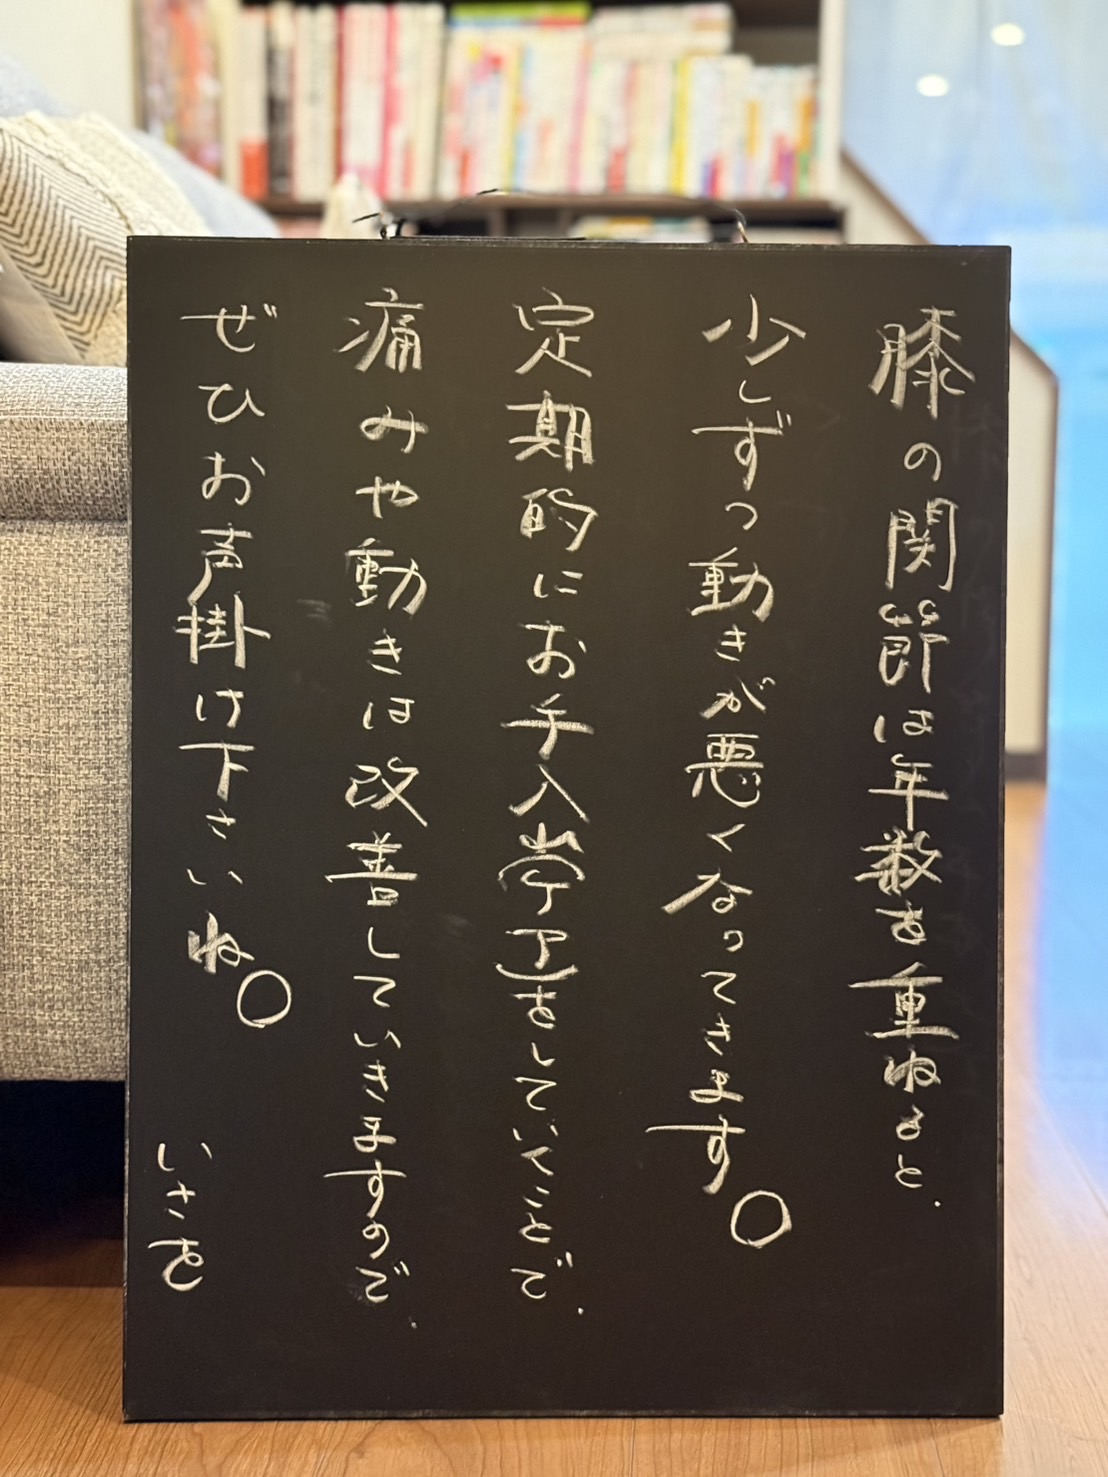 膝の関節は年数を重ねると、
少しずつ動きが悪くなってきます。
定期的にお手入をしていくことで、
痛みや動きは改善していきますので、
ぜひお声掛け下さいね。
いさを